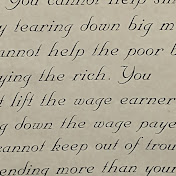 You cannot help
tearing down big
cannot help the poor
ying the rich. You
lift the wage earner
g down the wage paye
cannot keep out of trou
ending more than your